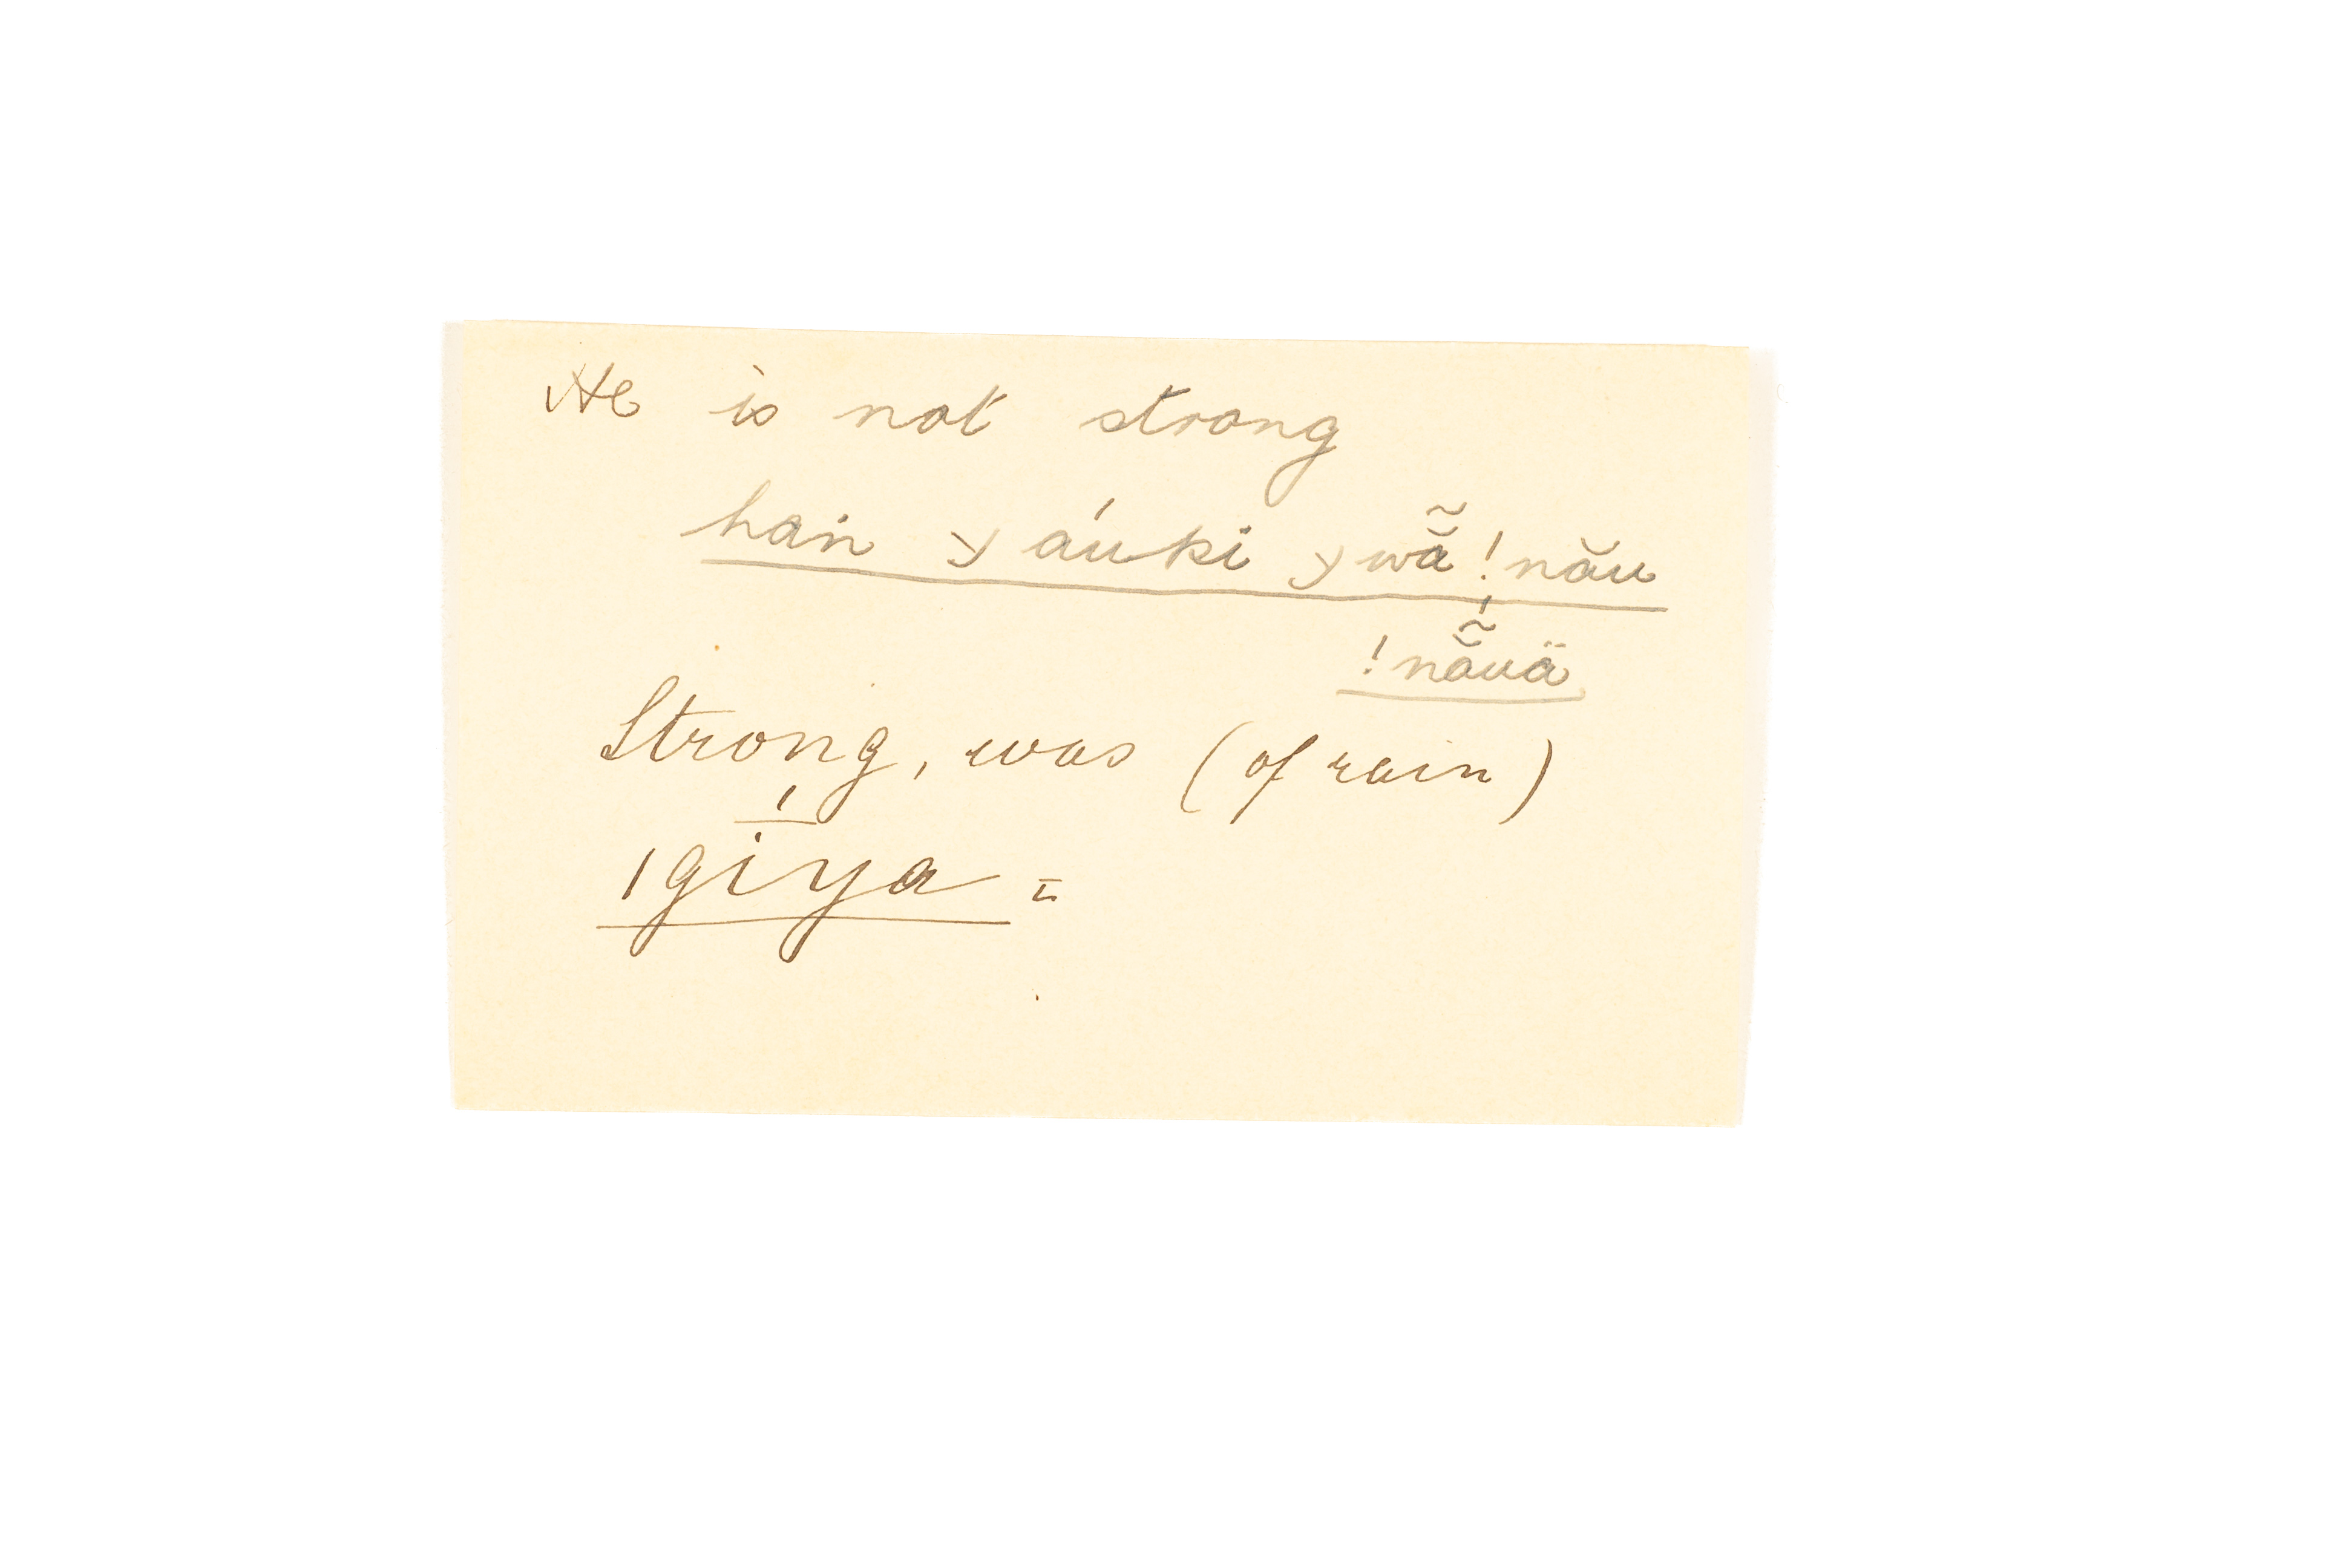 He is not strong
haṅ ɣ áuki ɣ wã̆ ! nău
! nã̆́uä
Strong, was (of rain)
ǀgī́ya =